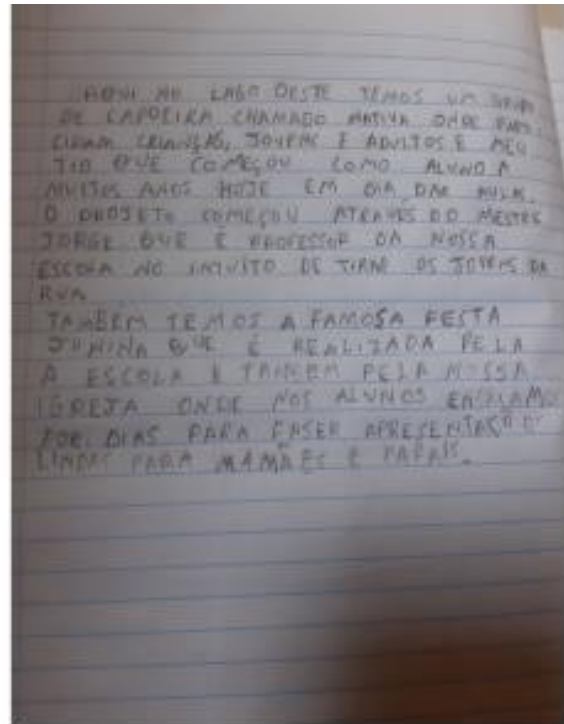 AQUI NO LAGO OESTE TEMOS UM GRUPO
DE CAPOEIRA CHAMADO ONDE PARTI
CIPAM CRIANÇAS, JOVENS E ADULTOS E MEU
TIO QUE COMEÇOU COMO ALUNO A
MUITOS ANOS HOJE EM DIA DAR AULA.
O PROJETO COMEÇOU ATRAVES DO MESTRE
JORGE QUE É PROFESSOR DA NOSSA
ESCOLA NO INTUITO DE OS JOVENS DA
RUA
TAMBÉM TEMOS A FAMOSA FESTA
JUNINA QUE É REALIZADA PELA
A ESCOLA E TAMBEM PELA NOSSA
IGREJA ONDE NOS ALUNOS ENSAIAMOS
POR DIAS PARA FASER
LINDAS PARA MAMÃES E PAPAIS.